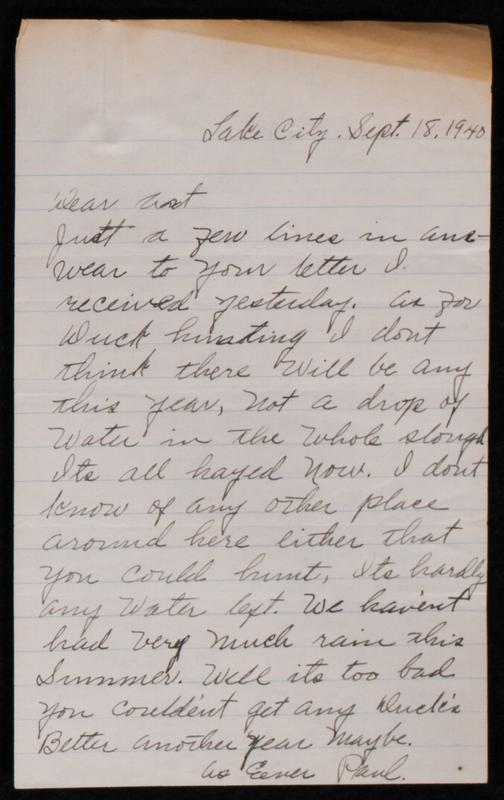 Lake City. Sept. 18, 1940
Dear Art
Just a few lines in ans-
wear to your letter I.
received yesterday. as for
Duck hunting I dont
think there will be any
this year, Not a drop of
Water in the whole slough
Its all hayed now. I dont
know of any other place
around here either that
you could hunt, Its hardly
any Water left. We haven't
had very much rain this
Summer. Well its too bad
you could'ent get any Duck's
Better another year maybe.
as Ever Paul.